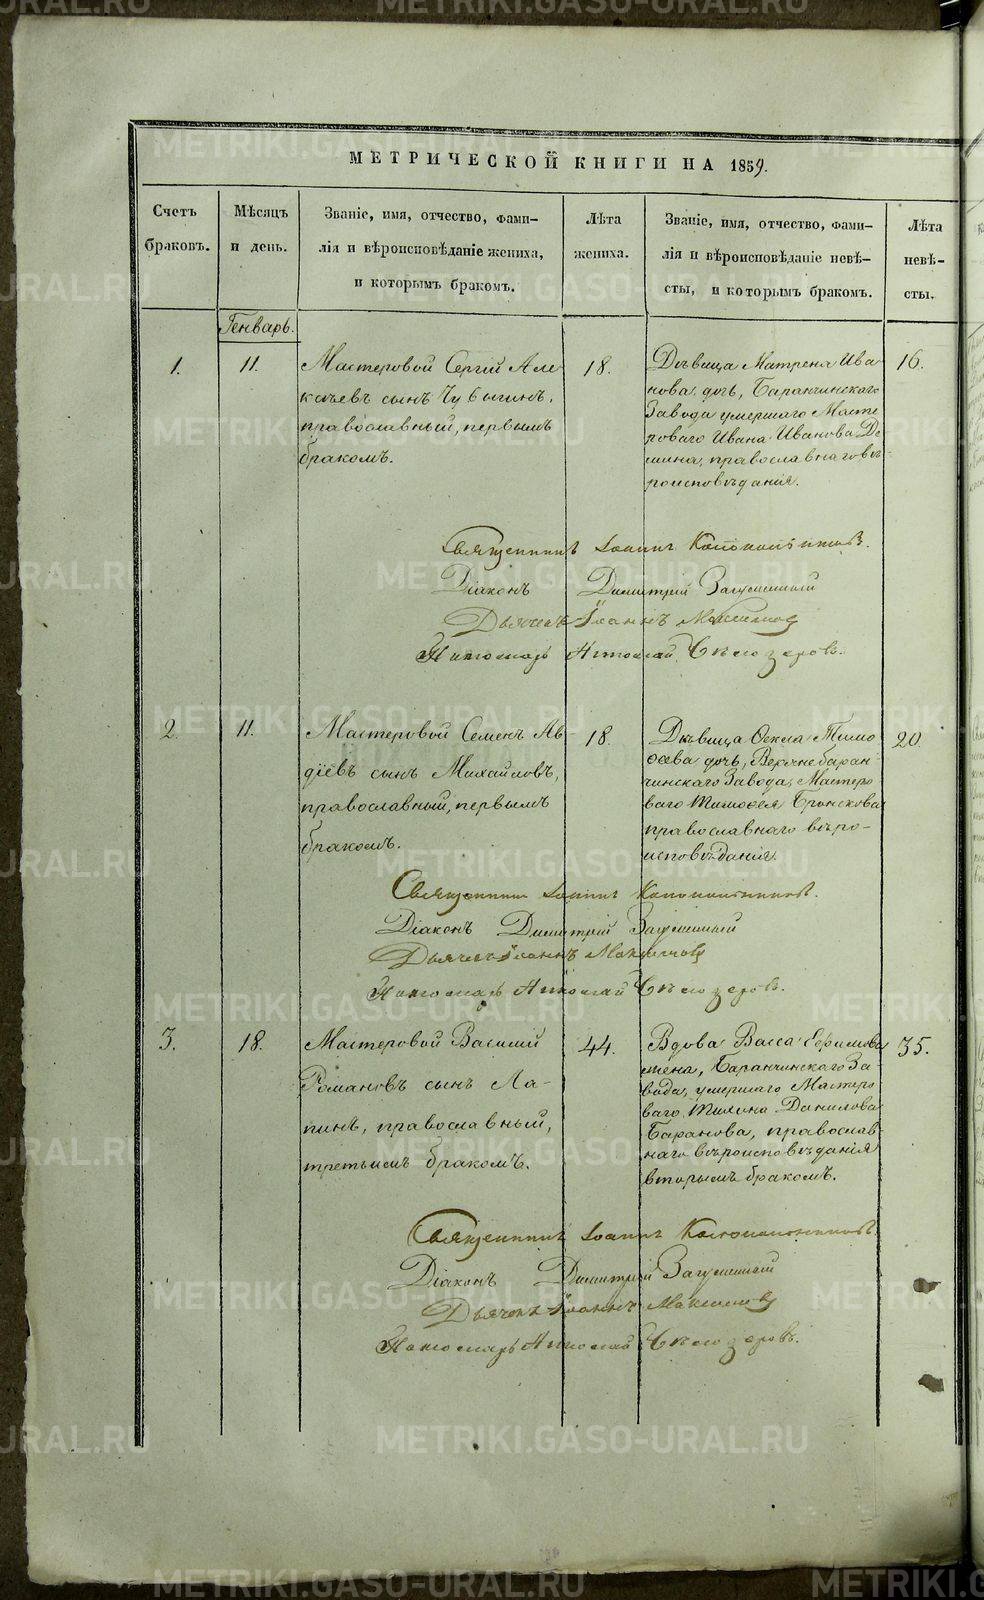 МЕТРИЧЕСКОЙ КНИГИ НА 1859.
Счетъ браковъ.
Мѣсяцъ и день.
Званіе, имя, отчество, фами-
лія и вѣроисповѣданіе жениха,
и которымъ бракомъ.
Лѣта жениха.
Званіе, имя, отчество, фами-
лія и вѣроисповѣданіе невѣ-
сты, и которымъ бракомъ.
Лѣта невѣ-
сты.
Генварь.
1.
11.
Мастеровой Сергій Але
ксѣевъ сынъ Чубыгинъ,
православный, первымъ
бракомъ.
18.
Дѣвица Матрена Ива
нова дочь, Баранчинскаго
Завода умершаго Масте
роваго Ивана Иванова Де
мина, православнаго вѣ-
роисповѣданія.
16.
Священникъ Іоаннъ
Діаконъ Димитрій
Дьячекъ Іоаннъ Максимовъ
Пономарь Николай Бѣлозеровъ.
2.
11.
Мастеровой Семенъ Ав
дѣевъ сынъ Михайловъ,
православный, первымъ
бракомъ.
18.
Дѣвица Ѳекла Тимо
ѳеева дочь, Верхнебаран-
чинскаго Завода, Мастеро
ваго Тимоѳея
православнаго вѣро-
исповѣданія.
20.
Священникъ Іоаннъ
Діаконъ Димитрій
Дьячекъ Іоаннъ Максимовъ
Пономарь Николай Бѣлозеровъ.
3.
18.
Мастеровой Василій
Романовъ сынъ Ла-
пинъ, православный,
третьимъ бракомъ.
44.
Вдова Васса Ефимова
жена, Баранчинскаго За
вода, умершаго Мастеро
ваго Тихона Данилова
Баранова, православ-
наго вѣроисповѣданія
вторымъ бракомъ.
35.
Священникъ Іоаннъ
Діаконъ Димитрій
Дьячекъ Іоаннъ Максимовъ
Пономарь Николай Бѣлозеровъ.
METRIKI.GASO-URAL.RU